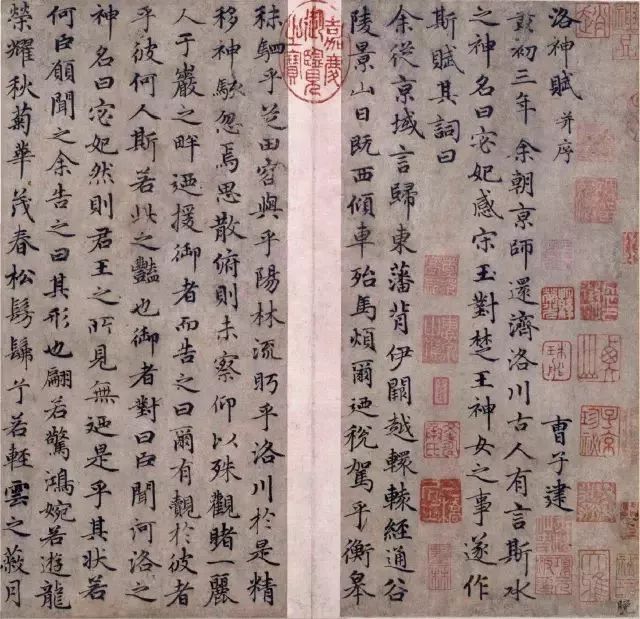 洛神賦 并序 曹子建
初三年余朝京師還濟洛川古人有言斯水
之神名曰宓妃感宋玉對楚王神女之事遂作
斯賦其詞曰
余從京域言歸東藩背伊闕越轘轅經通谷
陵景山日既西傾車殆馬煩爾迺稅駕乎衡皋
嘉慶御覽之寶
秣駟乎芝田容與乎陽林流眄乎洛川於是精
移神駭忽焉思散俯則未察仰以殊觀睹一麗
人于巖之畔迺援御者而告之曰爾有覿於彼者
乎彼何人斯若此之豔也御者對曰臣聞河洛之
神名曰宓妃然則君王之所見無迺是乎其狀若
何臣願聞之余告之曰其形也翩若驚鴻婉若遊龍
榮耀秋菊華茂春松髣髴兮若輕雲之蔽月